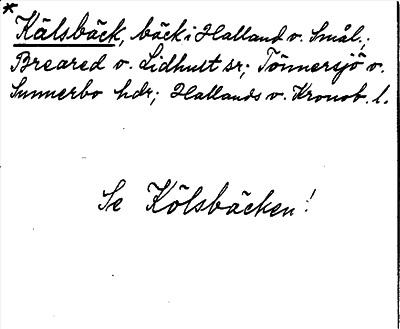 * Kälsbäck, bäck i Halland o. Smål.;
Breared o. Lidhult sr; Tönnersjö o.
Sunnerbo hdr; Hallands o. Kronob. l.
Se Kölsbäcken!